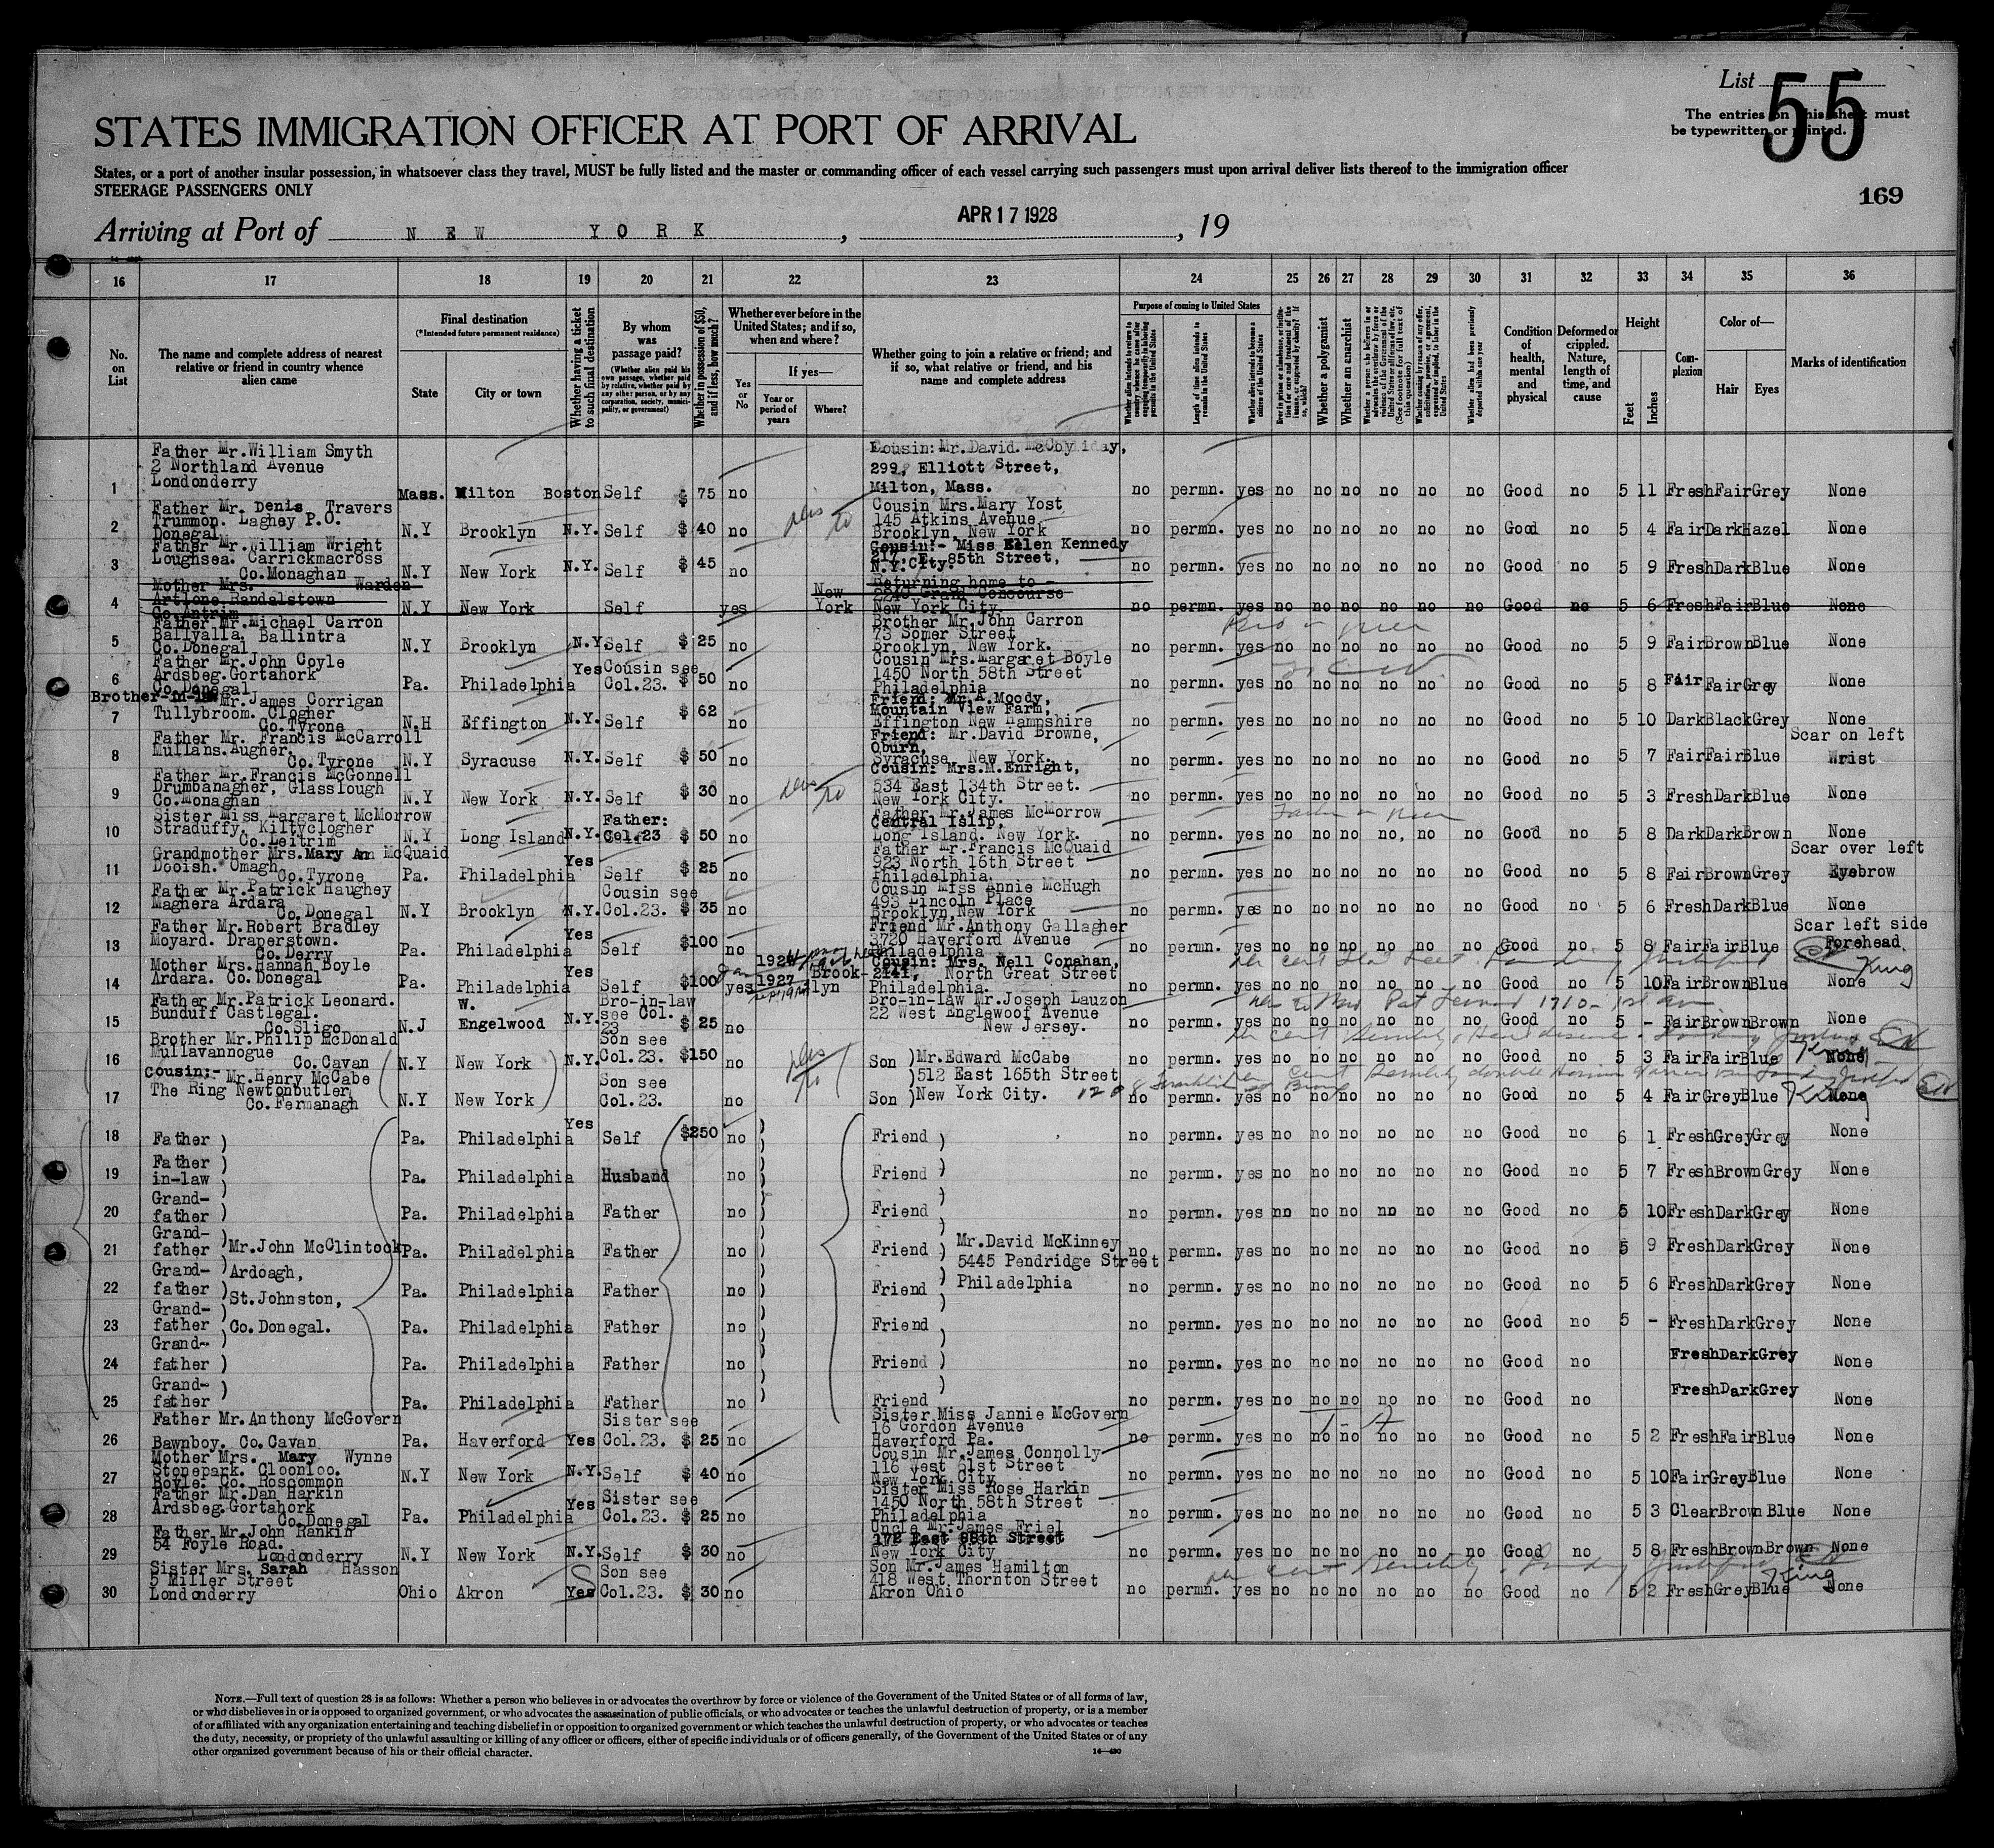 List 55
The entries on this sheet must
be typewritten or printed.
STATES IMMIGRATION OFFICER AT PORT OF ARRIVAL
States, or a port of another insular possession, in whatsoever class they travel, MUST be fully listed and the master or commanding officer of each vessel carrying such passengers must upon arrival deliver lists thereof to the immigration officer
STEERAGE PASSENGERS ONLY
169
Arriving at Port of NEW YORK, APR 17 1928, 19
16 17 18 19 20 21 22 23 24 25 26 27 28 29 30 31 32 33 34 35 36
No. on List
The name and complete address of nearest relative or friend in country whence alien came
Final destination
(*Intended future permanent residence)
State
City or town
Whether having a ticket to such final destination
By whom was passage paid?
(Whether alien paid his own passage, whether paid by relative, whether paid by any other person, or by any corporation, society, municipality, or government)
Whether in possession of $50, and if less, how much?
Whether ever before in the United States; and if so, when and where?
Yes or No
If yes—
Year or period of years
Where?
Whether going to join a relative or friend; and if so, what relative or friend, and his name and complete address
Purpose of coming to United States
Length of time alien intends to remain in the United States
Whether alien intends to become a citizen of the United States
Whether a polygamist
Whether an anarchist
Condition of health, mental and physical
Deformed or crippled. Nature, length of time, and cause
Height
Feet
Inches
Complexion
Color of—
Hair
Eyes
Marks of identification
1 Father Mr.William Smyth
2 Northland Avenue
Londonderry
Mass. Milton Boston Self $ 75 no
Cousin: Mr.David. McCoy
299, Elliott Street,
Milton, Mass.
no permn. yes no no no no no no Good no 5 11 Fresh Fair Grey None
2 Father Mr. Denis Travers
Trummon. Laghey P.O.
Donegal
N.Y Brooklyn N.Y. Self $ 40 no
Cousin Mrs.Mary Yost
145 Atkins Avenue
Brooklyn, New York
no permn. yes no no no no no no Good no 5 4 Fair Dark Hazel None
3 Father Mr.William Wright
Loughsea. Carrickmacross
Co.Monaghan
N.Y New York N.Y. Self $ 45 no
Cousin:- Miss Ellen Kennedy
217, E. 85th Street,
N.Y.City.
no permn. yes no no no no no no Good no 5 9 Fresh Dark Blue None
4 Mother Mrs. Warden
Artlone Randalstown
Co.Antrim
N.Y New York Self yes New York
Returning home to -
2240 Grand Concourse
New York City.
no permn. yes no no no no no no Good no 5 6 Fresh Fair Blue None
5 Father Mr.Michael Carron
Ballyalla, Ballintra
Co.Donegal
N.Y Brooklyn N.Y. Self $ 25 no
Brother Mr.John Carron
73 Somer Street
Brooklyn, New York.
no permn. yes no no no no no no Good no 5 9 Fair Brown Blue None
6 Father Mr.John Coyle
Ardsbeg.Gortahork
Co.Donegal
Pa. Philadelphia Yes Cousin see Col.23. $ 50 no
Cousin Mrs.Margaret Boyle
1450 North 58th Street
Philadelphia
no permn. yes no no no no no no Good no 5 8 Fair Fair Grey None
7 Brother-in-law Mr.James Corrigan
Tullybroom. Clogher
Co.Tyrone
N.H Effington N.Y. Self $ 62 no
Friend: Mr.A.Moody,
Mountain View Farm,
Effington New Hampshire
no permn. yes no no no no no no Good no 5 10 Dark Black Grey None
8 Father Mr. Francis McCarroll
Mullans.Augher.
Co.Tyrone
N.Y Syracuse N.Y. Self $ 50 no
Friend: Mr.David Browne,
Oburn,
Syracuse, New York.
no permn. yes no no no no no no Good no 5 7 Fair Fair Blue Scar on left Wrist
9 Father Mr.Francis McGonnell
Drumbanagher, Glasslough
Co.Monaghan
N.Y New York N.Y. Self $ 30 no
Cousin: Mrs.M.Enright,
534 East 134th Street.
New York City.
no permn. yes no no no no no no Good no 5 3 Fresh Dark Blue None
10 Sister Miss Margaret McMorrow
Straduffy, Kiltyclogher
Co.Leitrim
N.Y Long Island N.Y. Father: Col.23 $ 50 no
Father Mr.James McMorrow
Central Islip,
Long Island. New York.
no permn. yes no no no no no no Good no 5 8 Dark Dark Brown None
11 Grandmother Mrs.Mary Ann McQuaid
Dooish. Omagh
Co.Tyrone
Pa. Philadelphia Yes Self $ 25 no
Father Mr.Francis McQuaid
923 North 16th Street
Philadelphia.
no permn. yes no no no no no no Good no 5 8 Fair Brown Grey Scar over left Eyebrow
12 Father Mr.Patrick Haughey
Maghera Ardara
Co.Donegal
N.Y Brooklyn N.Y. Cousin see Col.23. $ 35 no
Cousin Miss Annie McHugh
493 Lincoln Place
Brooklyn,New York
no permn. yes no no no no no no Good no 5 6 Fresh Dark Blue None
13 Father Mr.Robert Bradley
Moyard. Draperstown.
Co.Derry
Pa. Philadelphia Yes Self $100 no
Friend Mr.Anthony Gallagher
3720 Haverford Avenue
Philadelphia
no permn. yes no no no no no no Good no 5 8 Fair Fair Blue Scar left side Forehead
King
14 Mother Mrs.Hannah Boyle
Ardara. Co.Donegal
Pa. Philadelphia Yes Self $100 yes 1924 1927 Brook-lyn
Cousin: Mrs. Nell Conahan,
2141, North Great Street
Philadelphia.
no permn. yes no no no no no no Good no 5 10 Fair Brown Blue None
15 Father Mr.Patrick Leonard.
Bunduff Castlegal.
Co.Sligo
N.J W. Engelwood N.Y. Bro-in-law see Col. 23 $ 25 no
Bro-in-law Mr.Joseph Lauzon
22 West Englewoof Avenue
New Jersey.
no permn. yes no no no no no no Good no 5 - Fair Brown Brown None
16 Brother Mr.Philip McDonald
Mullavannogue
Co.Cavan
N.Y New York N.Y. Son see Col.23. $150 no
Son )Mr.Edward McCabe
)512 East 165th Street
no permn. yes no no no no no no Good no 5 3 Fair Fair Blue None
17 Cousin:- Mr.Henry McCabe
The Ring Newtonbutler
Co.Fermanagh
N.Y New York Son see Col.23. no
Son )New York City.
no permn. yes no no no no no no Good no 5 4 Fair Grey Blue None
18 Father ) Pa. Philadelphia Yes Self $250 no Friend ) no permn. yes no no no no no no Good no 6 1 Fresh Grey Grey None
19 Father in-law ) Pa. Philadelphia Husband no Friend ) no permn. yes no no no no no no Good no 5 7 Fresh Brown Grey None
20 Grand-father ) Pa. Philadelphia Father no Friend ) no permn. yes no no no no no no Good no 5 10 Fresh Dark Grey None
21 Grand-father )Mr.John McClintock Pa. Philadelphia Father no Friend ) Mr.David McKinney
5445 Pendridge Street
no permn. yes no no no no no no Good no 5 9 Fresh Dark Grey None
22 Grand-father ) Ardoagh, Pa. Philadelphia Father no Friend ) Philadelphia no permn. yes no no no no no no Good no 5 6 Fresh Dark Grey None
St.Johnston,
23 Grand-father ) Co.Donegal. Pa. Philadelphia Father no Friend ) no permn. yes no no no no no no Good no 5 - Fresh Dark Grey None
24 Grand-father ) Pa. Philadelphia Father no Friend ) no permn. yes no no no no no no Good no Fresh Dark Grey None
25 Grand-father ) Pa. Philadelphia Father no Friend ) no permn. yes no no no no no no Good no Fresh Dark Grey None
26 Father Mr.Anthony McGovern
Bawnboy. Co.Cavan
Pa. Haverford Yes Sister see Col.23. $ 25 no
Sister Miss Jannie McGovern
16 Gordon Avenue
Haverford Pa.
no permn. yes no no no no no no Good no 5 2 Fresh Fair Blue None
27 Mother Mrs. Mary Wynne
Stonepark. Cloonloo.
Boyle. Co. Roscommon
N.Y New York N.Y. Self $ 40 no
Cousin Mr.James Connolly
116 West 61st Street
New York City
no permn. yes no no no no no no Good no 5 10 Fair Grey Blue None
28 Father Mr.Dan Harkin
Ardsbeg.Gortahork
Co.Donegal
Pa. Philadelphia Yes Sister see Col.23. $ 25 no
Sister Miss Rose Harkin
1450 North 58th Street
Philadelphia
no permn. yes no no no no no no Good no 5 3 Clear Brown Blue None
29 Father Mr.John Rankin
54 Foyle Road.
Londonderry
N.Y New York N.Y. Self $ 30 no
Uncle Mr.James Friel
172 East 88th Street
New York City
no permn. yes no no no no no no Good no 5 8 Fresh Brown Brown None
30 Sister Mrs. Sarah Hasson
5 Miller Street
Londonderry
Ohio Akron Yes Son see Col.23. $ 30 no
Son Mr.James Hamilton
418 West Thornton Street
Akron Ohio
no permn. yes no no no no no no Good no 5 2 Fresh Grey Blue None
King
NOTE.—Full text of question 28 is as follows: Whether a person who believes in or advocates the overthrow by force or violence of the Government of the United States or of all forms of law,
or who disbelieves in or is opposed to organized government, or who advocates the assassination of public officials, or who advocates or teaches the unlawful destruction of property, or is a member
of or affiliated with any organization entertaining and teaching disbelief in or opposition to organized government or which teaches the unlawful destruction of property, or who advocates or teaches
the duty, necessity, or propriety of the unlawful assaulting or killing of any officer or officers, either of specific individuals or of officers generally, of the Government of the United States or of any
other organized government because of his or their official character.
14—430